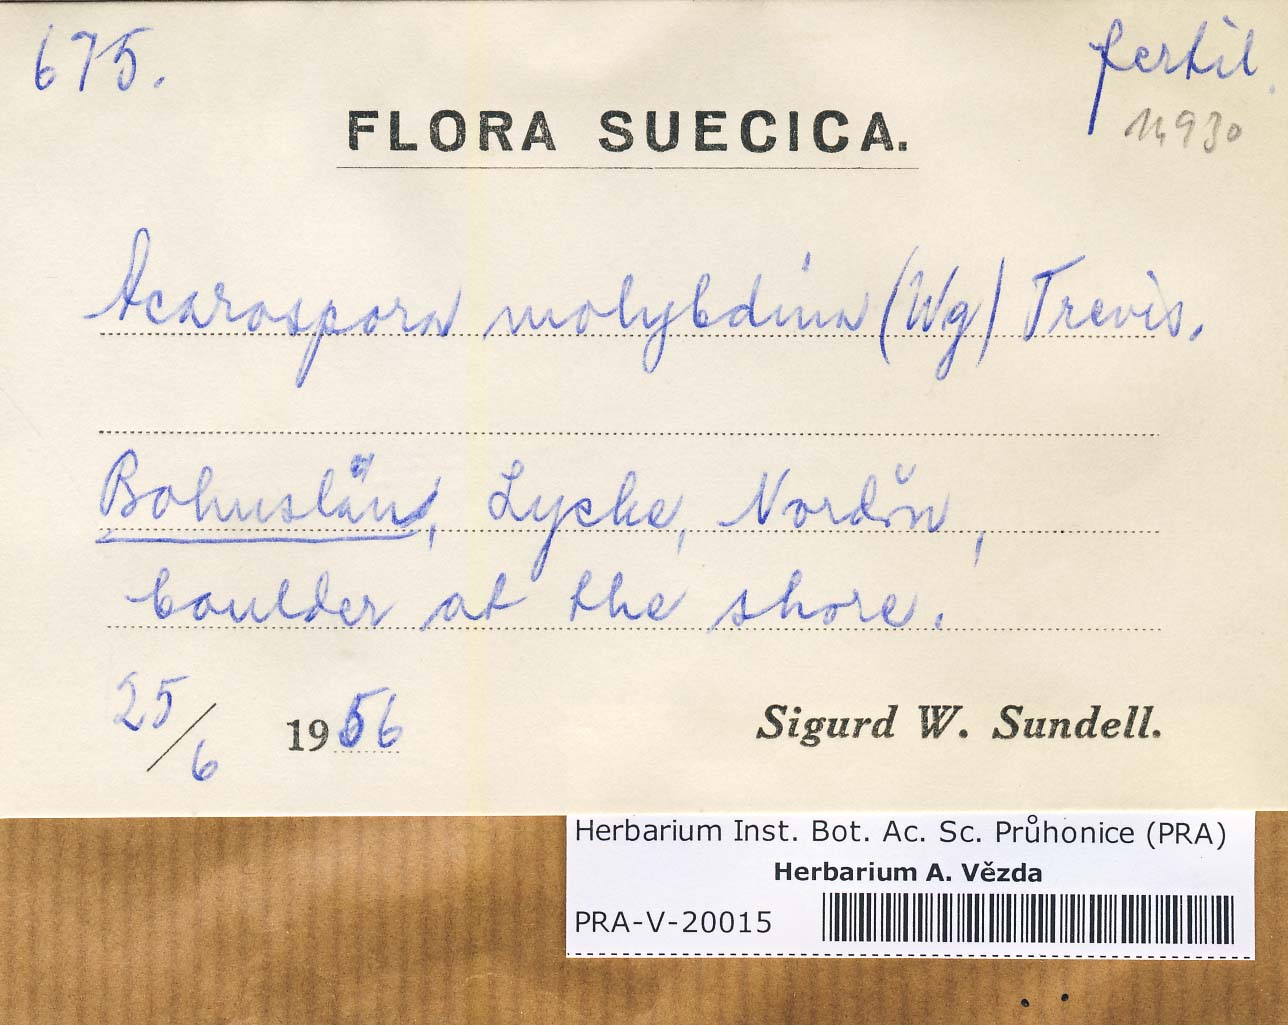 675.
fertil.
14930
FLORA SUECICA.
Acarospora molybdina (Wg) Trevis.
Bohuslän, Lycke, Nordön,
boulder at the shore.
25/6 1956
Sigurd W. Sundell.
Herbarium Inst. Bot. Ac. Sc. Průhonice (PRA)
Herbarium A. Vězda
PRA-V-20015